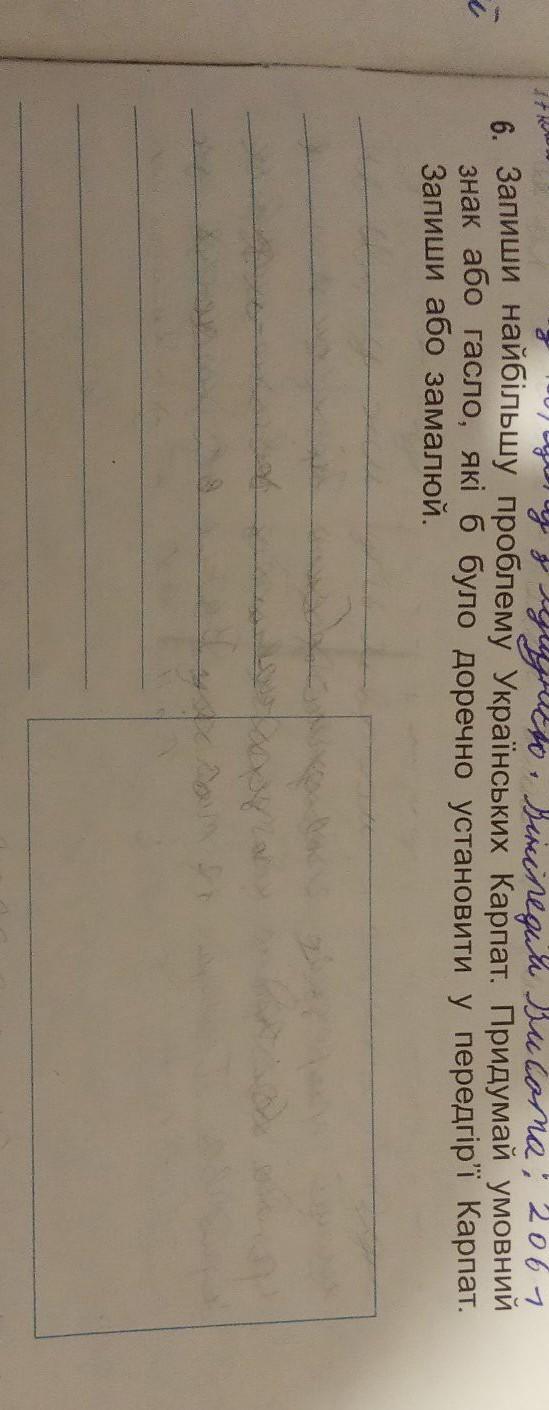 й
лущністю. Вініпедія Висота; 2061
6. Запиши найбільшу проблему Українських Карпат. Придумай умовний
знак або гасло, які б було доречно установити у передгір'ї Карпат.
Запиши або замалюй.